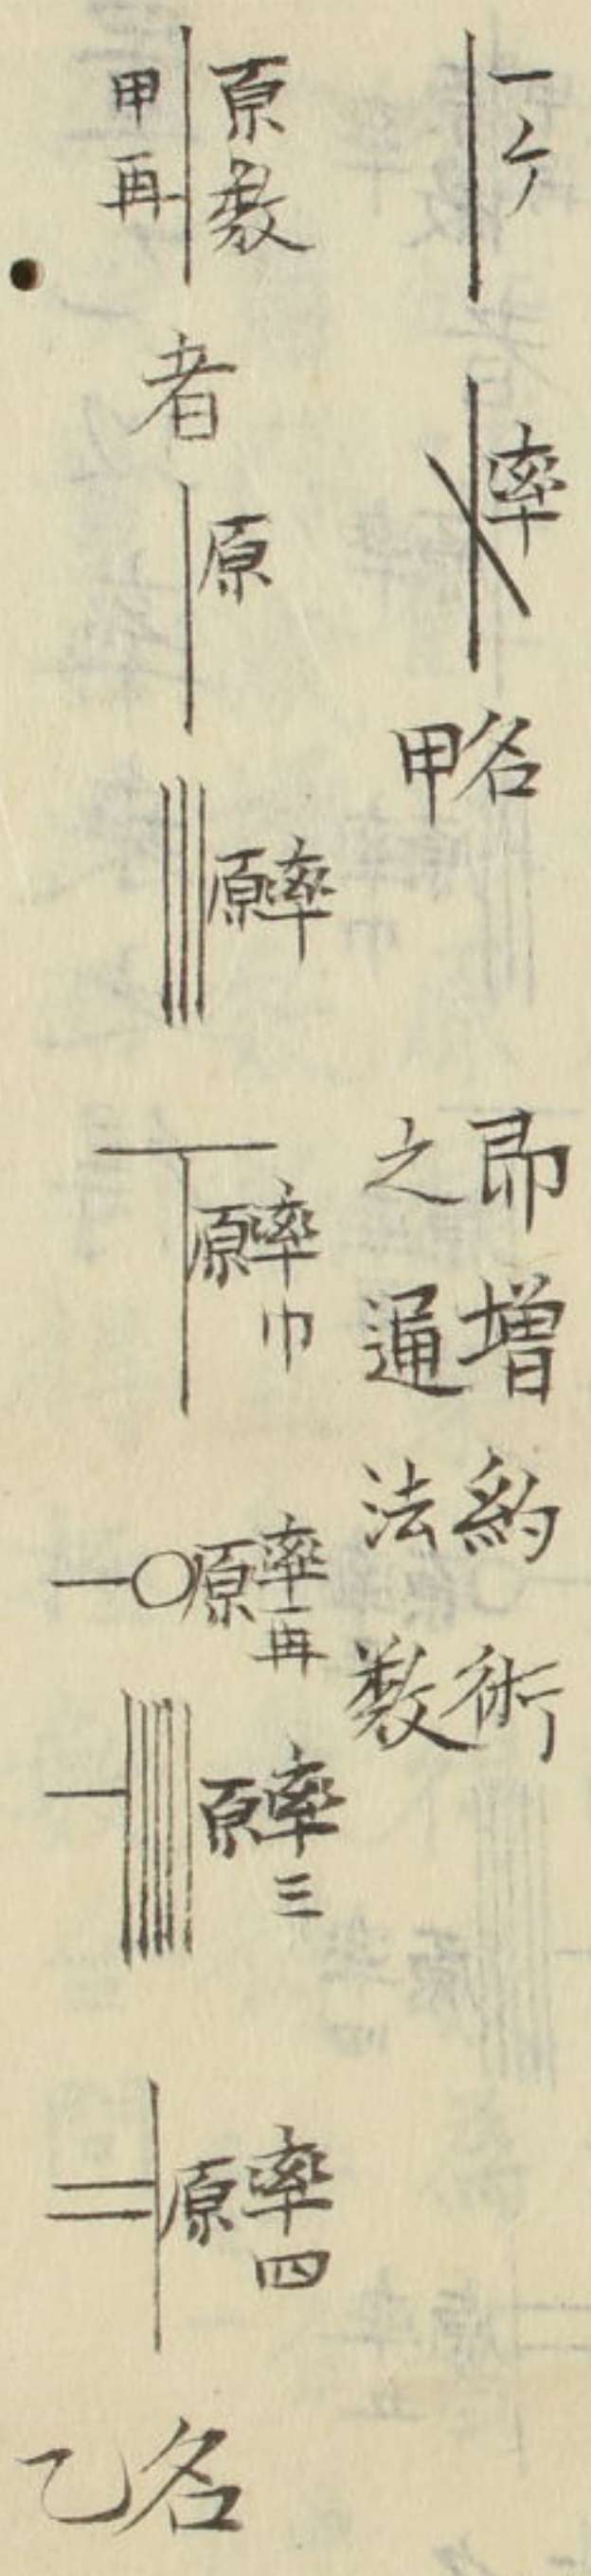 一ケ 率 名甲 即増約術之逼法数
原数 甲再 者 原 原率 原率巾 原率再 原率三 原率四 名乙